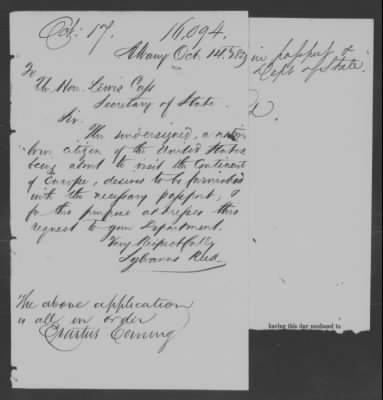 Oct. 17. 16,094.
Albany Oct. 14. 1859
To
The Hon. Lewis Cass
Secretary of State.
Sir.
The undersigned, a native
born citizen of the United States,
being about to visit the Continent
of Europe, desires to be furnished
with the necessary passport, &
for this purpose addresses this
request to your Department.
Very Respectfully
Sylvanus Reed.
The above application
is all in order
Erastus Corning
passport &
Dept of State.
having this day produced to